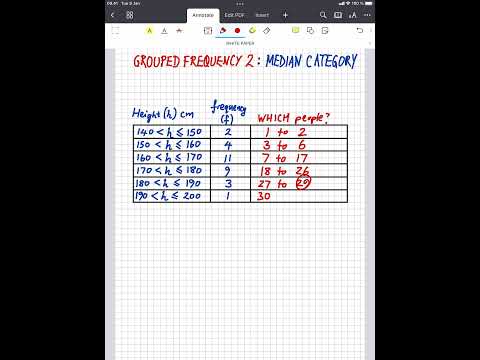 09:41 Tue 9 Jan
100%
Annotate Edit PDF Insert
WHITE PAPER
GROUPED FREQUENCY 2 : MEDIAN CATEGORY
Height (h) cm frequency (f) WHICH people?
140 < h ≤ 150 2 1 to 2
150 < h ≤ 160 4 3 to 6
160 < h ≤ 170 11 7 to 17
170 < h ≤ 180 9 18 to 26
180 < h ≤ 190 3 27 to 29
190 < h ≤ 200 1 30